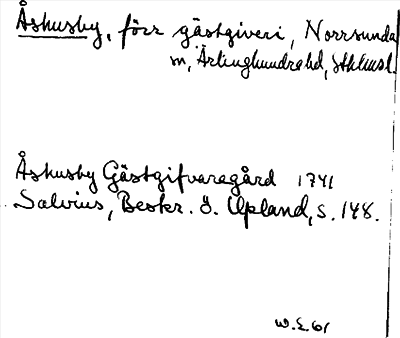 Åshusby, förr gästgiveri, Norrsunda
sn, Ärlinghundrahd, Sthlmsl.
Åshusby Gästgifvaregård 1741
Salvius, Beskr. ö. Upland, s. 148.
W.E. 61